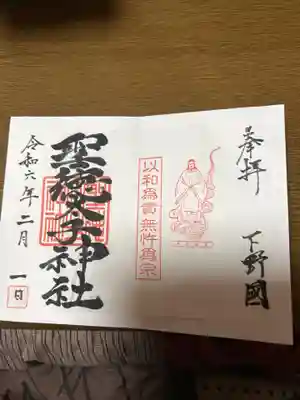 奉拝
下野國
以和為貴 無忤為宗
聖徳太子神社
令和六年二月
一日